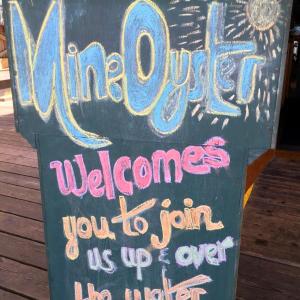 Mine Oyster
Welcomes
you to join
us up & over
the water